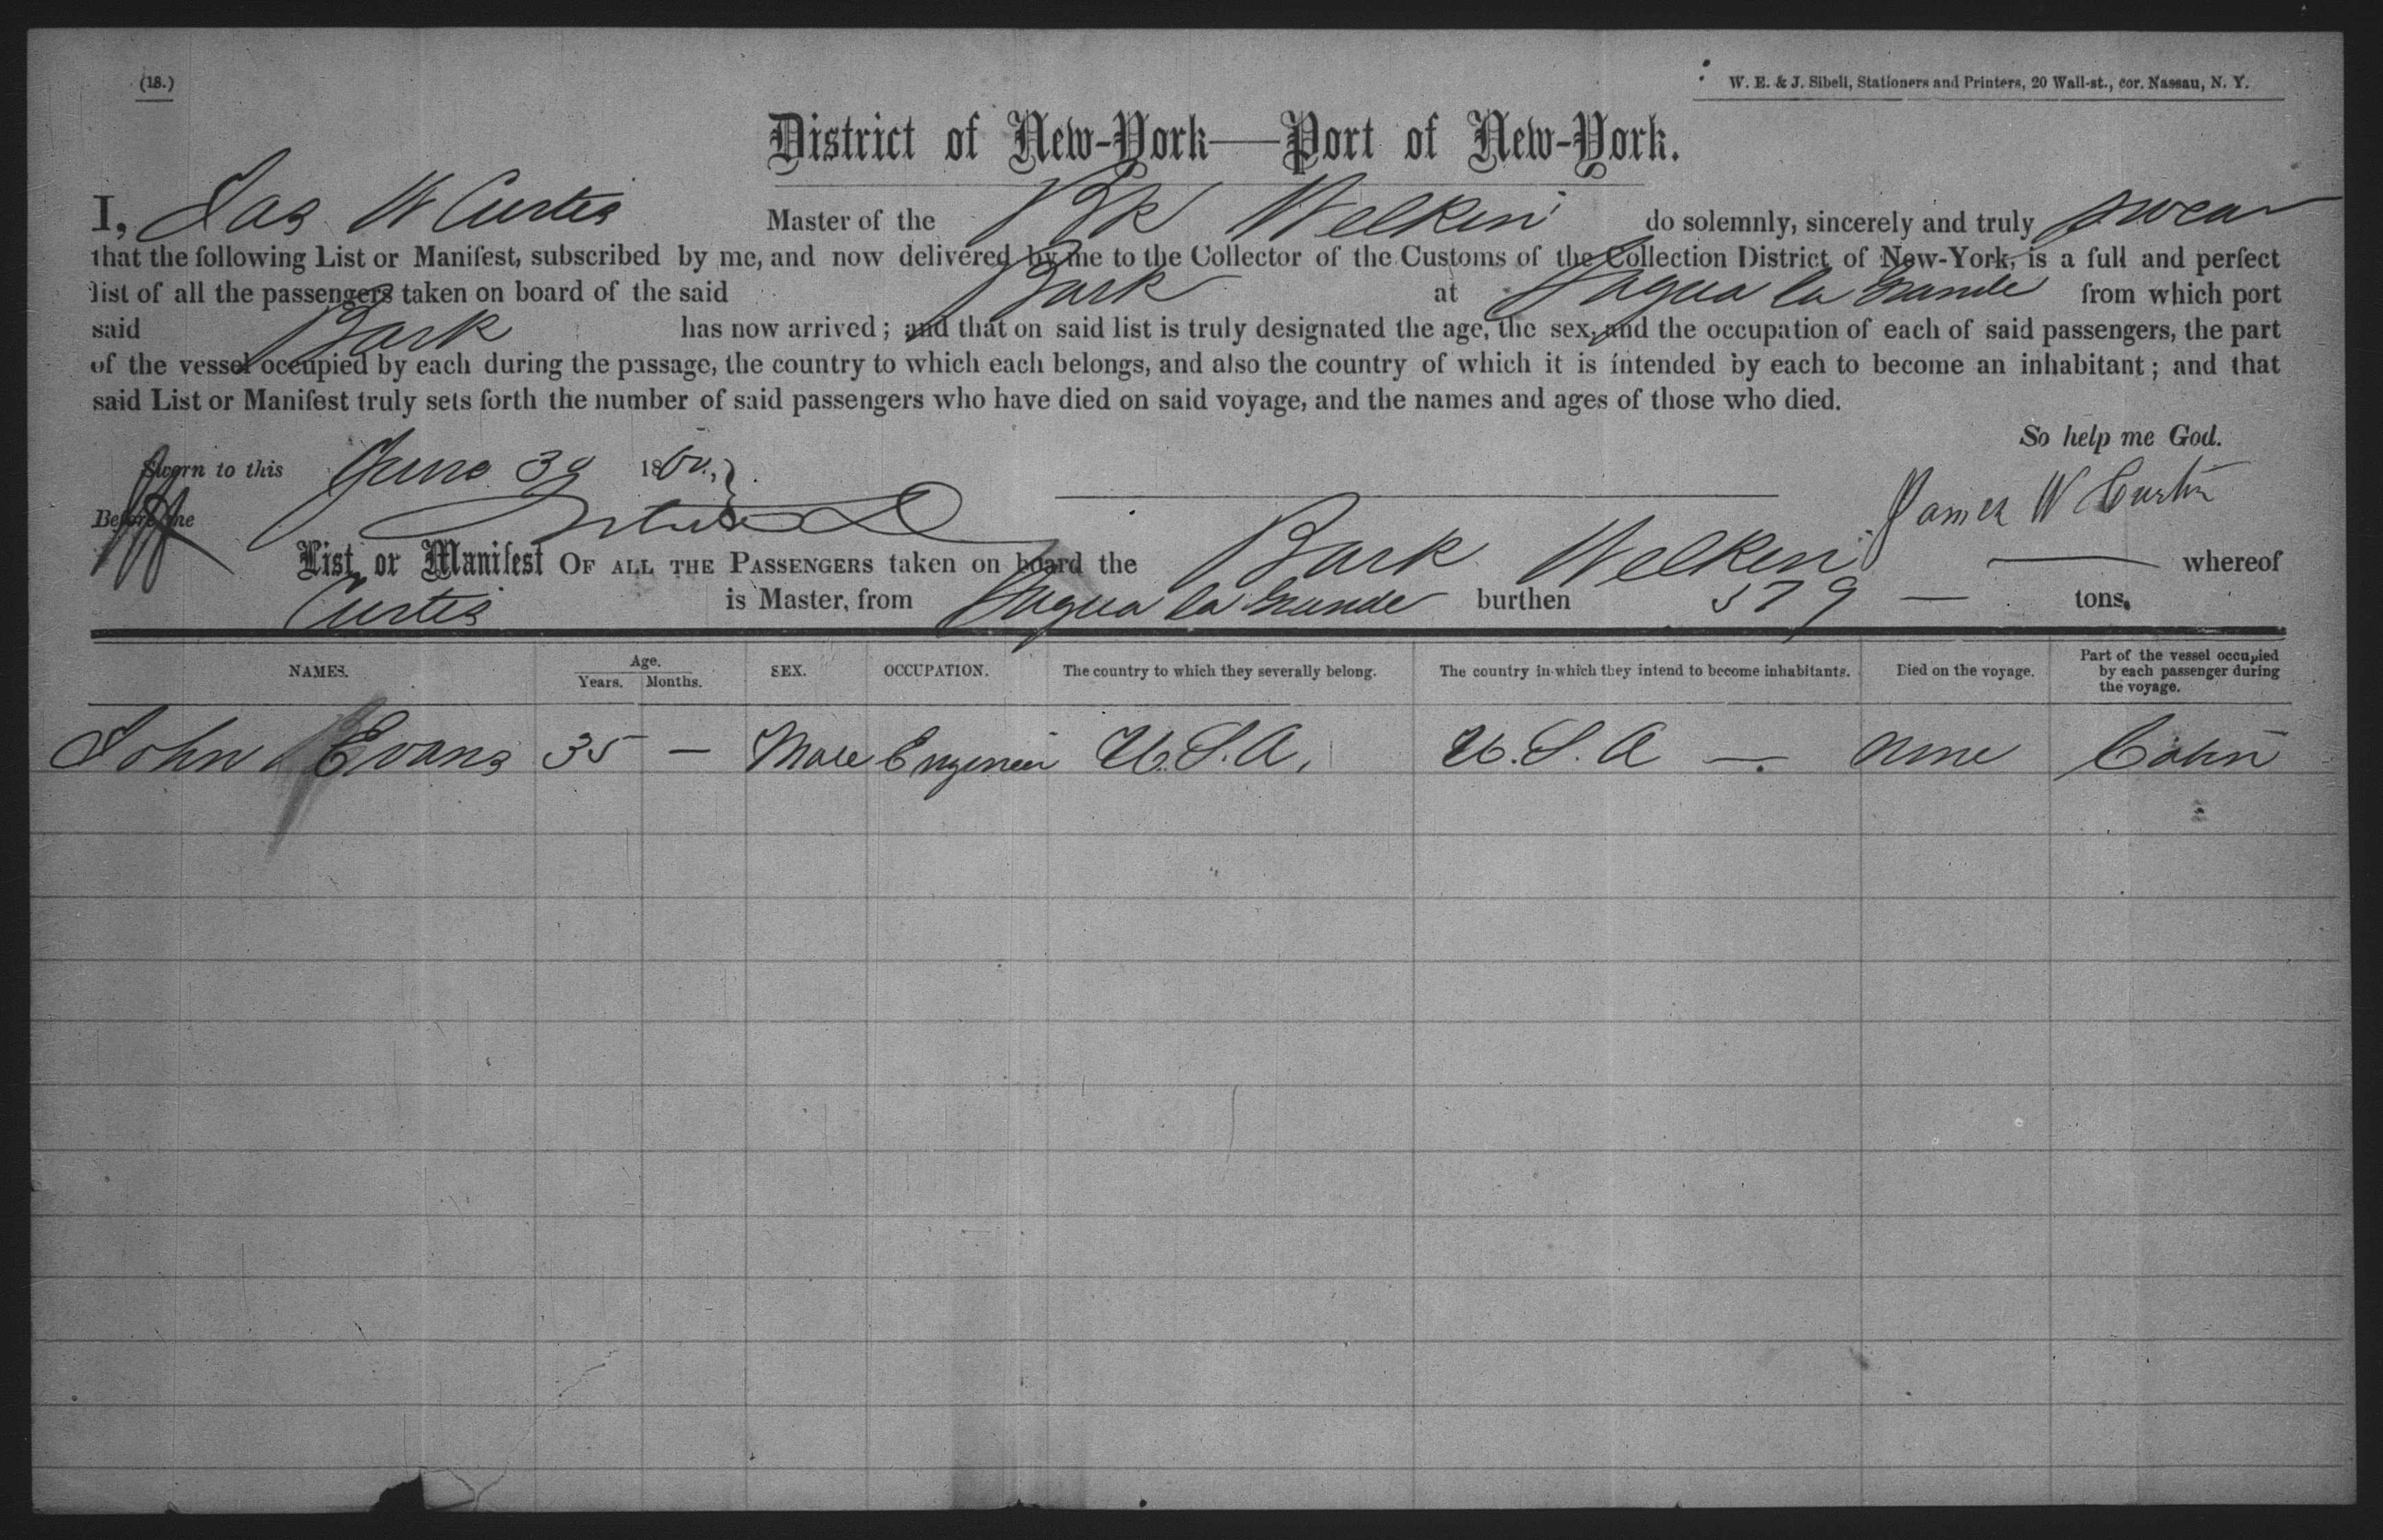 (18.)
W. E. & J. Sibell, Stationers and Printers, 20 Wall-st., cor. Nassau, N. Y.
District of New-York—Port of New-York.
I, Jas W Curtis Master of the Bk Welkin do solemnly, sincerely and truly swear
that the following List or Manifest, subscribed by me, and now delivered by me to the Collector of the Customs of the Collection District of New-York, is a full and perfect
list of all the passengers taken on board of the said Bark at Sagua la Grande from which port
said Bark has now arrived; and that on said list is truly designated the age, the sex, and the occupation of each of said passengers, the part
of the vessel occupied by each during the passage, the country to which each belongs, and also the country of which it is intended by each to become an inhabitant; and that
said List or Manifest truly sets forth the number of said passengers who have died on said voyage, and the names and ages of those who died.
So help me God.
Sworn to this June 30 18
James W Curtis
Before me
List or Manifest OF ALL THE PASSENGERS taken on board the Bark Welkin — whereof
Curtis is Master, from Sagua la Grande burthen 579 — tons.
NAMES. Age. Years. Months. SEX. OCCUPATION. The country to which they severally belong. The country in which they intend to become inhabitants. Died on the voyage. Part of the vessel occupied by each passenger during the voyage.
John Evans 35 — Male Engineer U.S.A. U.S.A — None Cabin